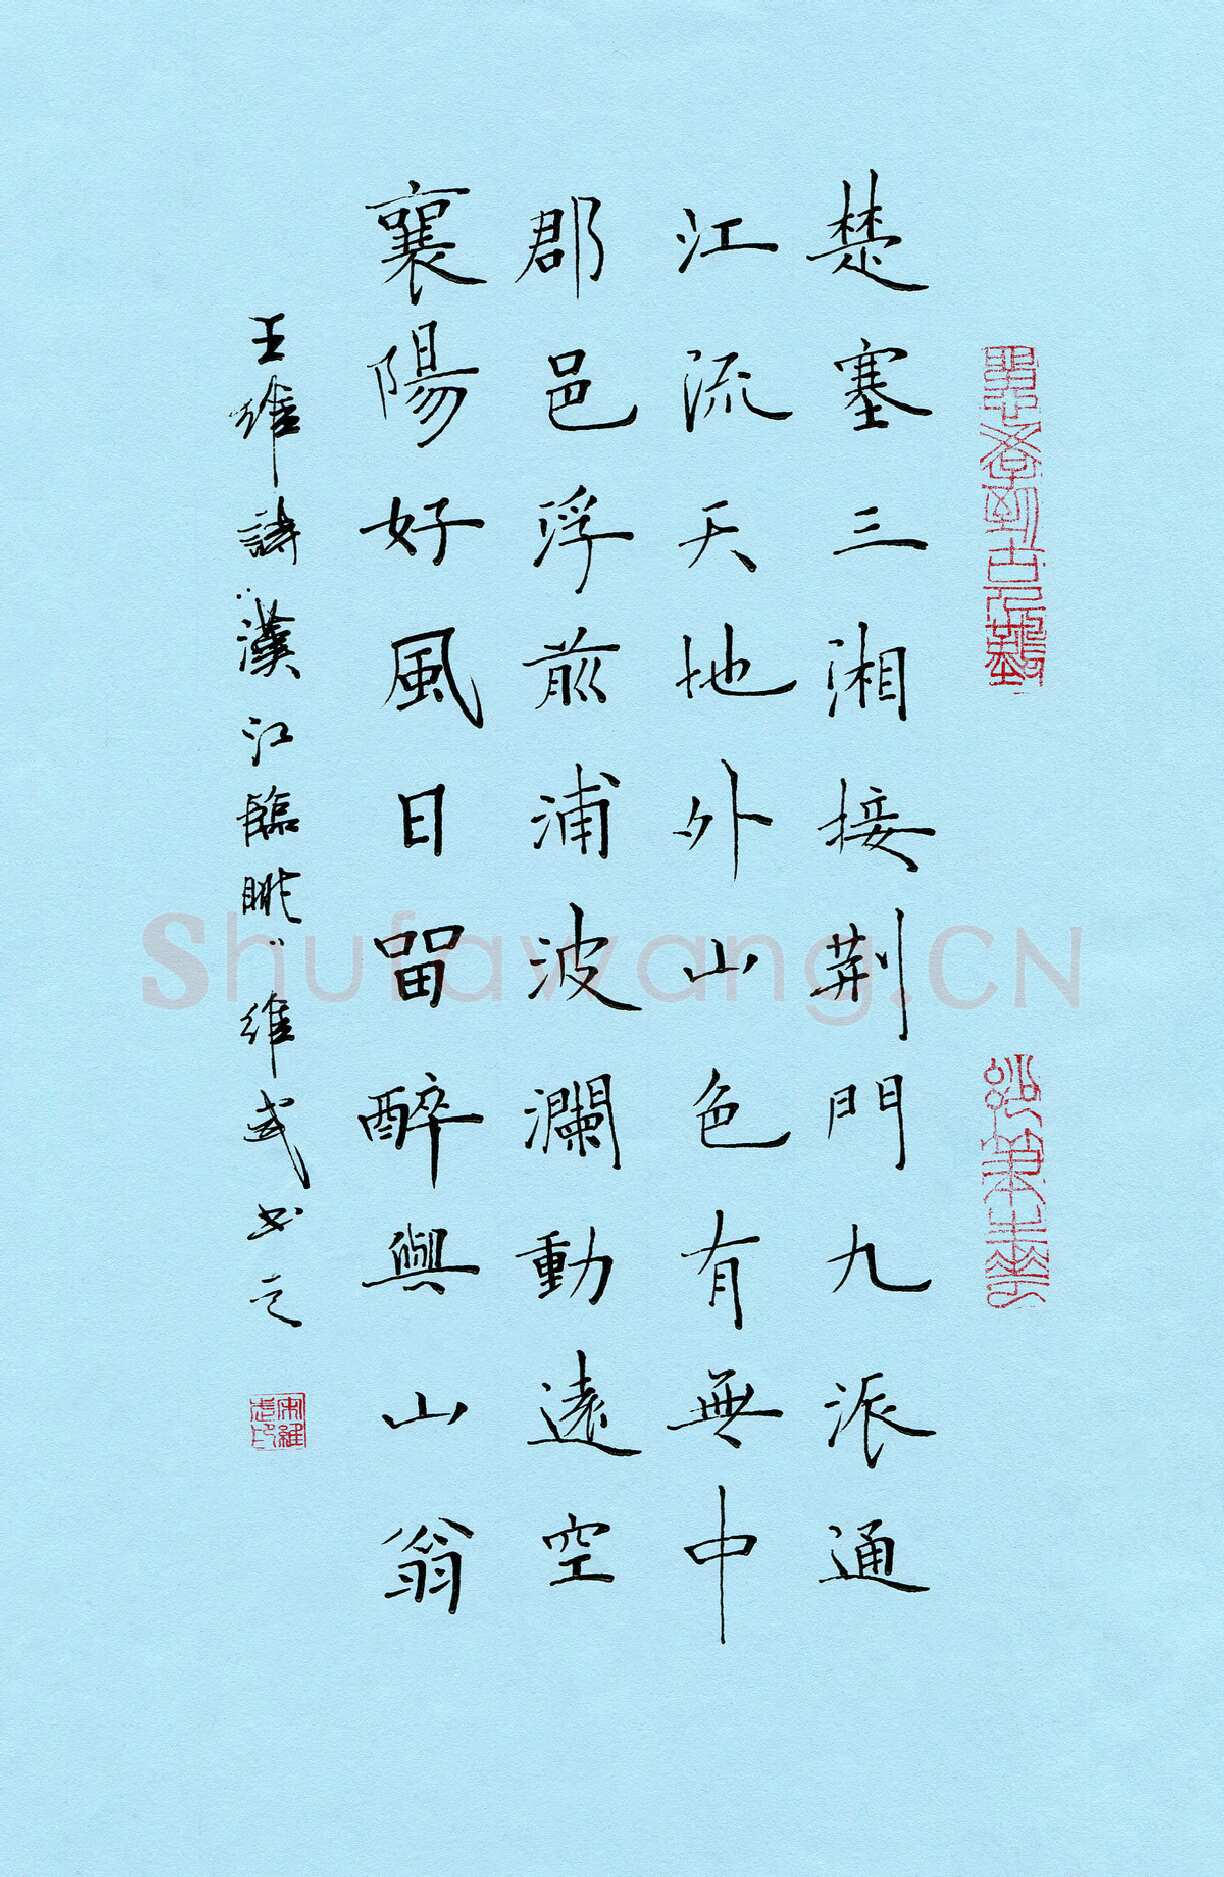 楚塞三湘接荆門九派通
江流天地外山色有無中
郡邑浮前浦波瀾動遠空
襄陽好風日留醉與山翁
王維詩漢江臨眺維武书之
宋維武印
Shufawang.CN